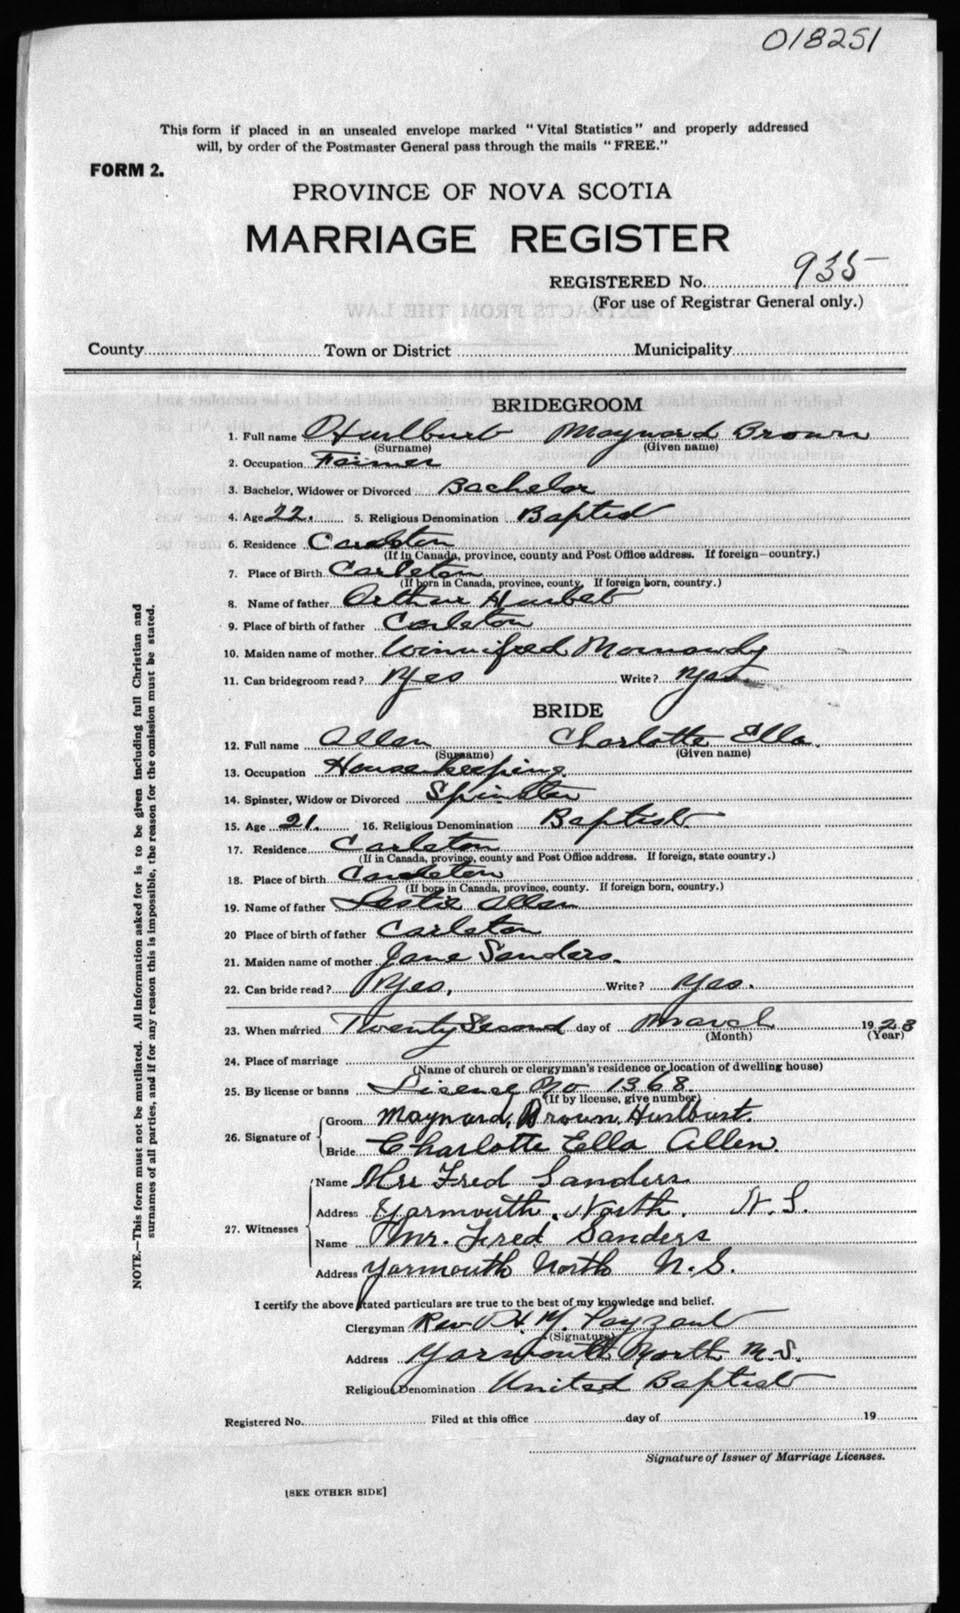 018251
This form if placed in an unsealed envelope marked "Vital Statistics" and properly addressed
will, by order of the Postmaster General pass through the mails "FREE."
FORM 2.
PROVINCE OF NOVA SCOTIA
MARRIAGE REGISTER
REGISTERED No. 935
(For use of Registrar General only.)
County Town or District Municipality
BRIDEGROOM
1. Full name Hurlburt Maynard Brown
(Surname) (Given name)
2. Occupation Farmer
3. Bachelor, Widower or Divorced Bachelor
4. Age 22. 5. Religious Denomination Baptist
6. Residence Carleton
(If in Canada, province, county and Post Office address. If foreign—country.)
7. Place of Birth Carleton
(If born in Canada, province, county. If foreign born, country.)
8. Name of father Arthur
9. Place of birth of father Carleton
10. Maiden name of mother Winnifred
11. Can bridegroom read? Yes Write? Yes.
BRIDE
12. Full name Allen Charlotte Ella.
(Surname) (Given name)
13. Occupation Housekeeping
14. Spinster, Widow or Divorced Spinster
15. Age 21. 16. Religious Denomination Baptist
17. Residence Carleton
(If in Canada, province, county and Post Office address. If foreign, state country.)
18. Place of birth Carleton
(If born in Canada, province, county. If foreign born, country.)
19. Name of father Leslie Allen
20 Place of birth of father Carleton
21. Maiden name of mother Jane Sanders.
22. Can bride read? Yes. Write? Yes.
23. When married Twenty Second day of March 1928
(Month) (Year)
24. Place of marriage
(Name of church or clergyman's residence or location of dwelling house)
25. By license or banns License No 1368
(If by license, give number)
26. Signature of Groom Maynard Brown Hurlburt.
Bride Charlotte Ella Allen.
27. Witnesses Name Mrs Fred Sanders
Address Yarmouth North. N.S.
Name Mr. Fred Sanders
Address Yarmouth North N.S.
I certify the above stated particulars are true to the best of my knowledge and belief.
Clergyman Rev H. Y. Payzant
(Signature)
Address Yarmouth North N.S.
Religious Denomination United Baptist
Registered No. Filed at this office day of 19
Signature of Issuer of Marriage Licenses.
[SEE OTHER SIDE]
NOTE.—This form must not be mutilated. All information asked for is to be given including full Christian and
surnames of all parties, and if for any reason this is impossible, the reason for the omission must be stated.